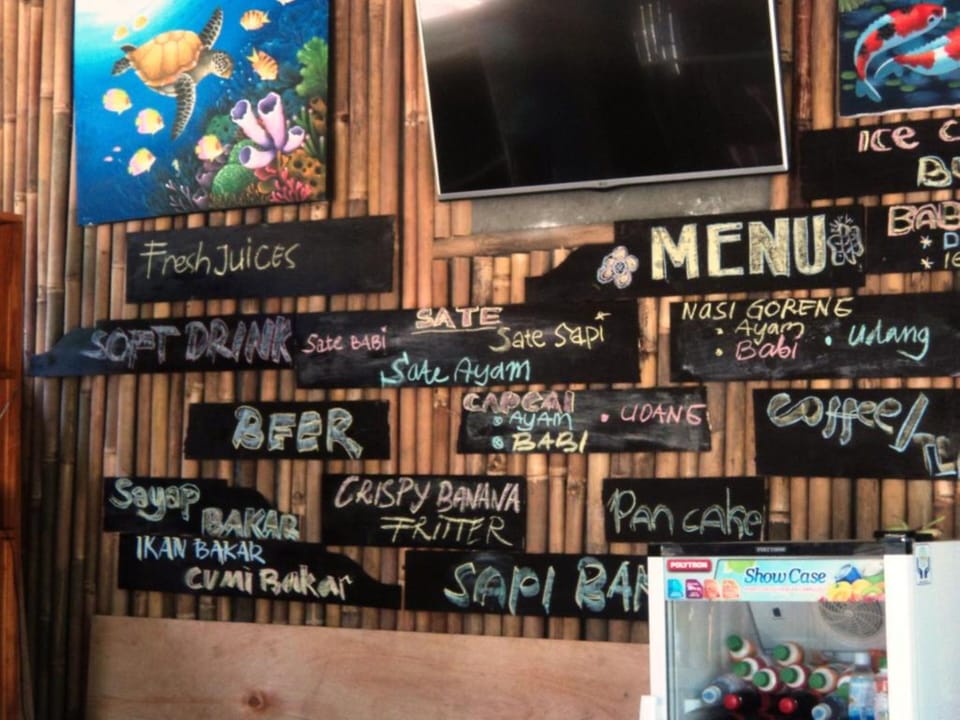 ICE C
BU
Fresh JUICES
MENU
BAB
SOFT DRINK
SATE
Sate BABI
Sate Sapi
Sate Ayam
NASI GORENG
Ayam
Babi
Udang
BEER
CAPCAI
AYAM
UDANG
BABI
Coffee/
Sayap
BAKAR
CRISPY BANANA
FRITTER
Pancake
IKAN BAKAR
CUMI Bakar
SAPI BAK
POLYTRON
POLYTRON
Show Case